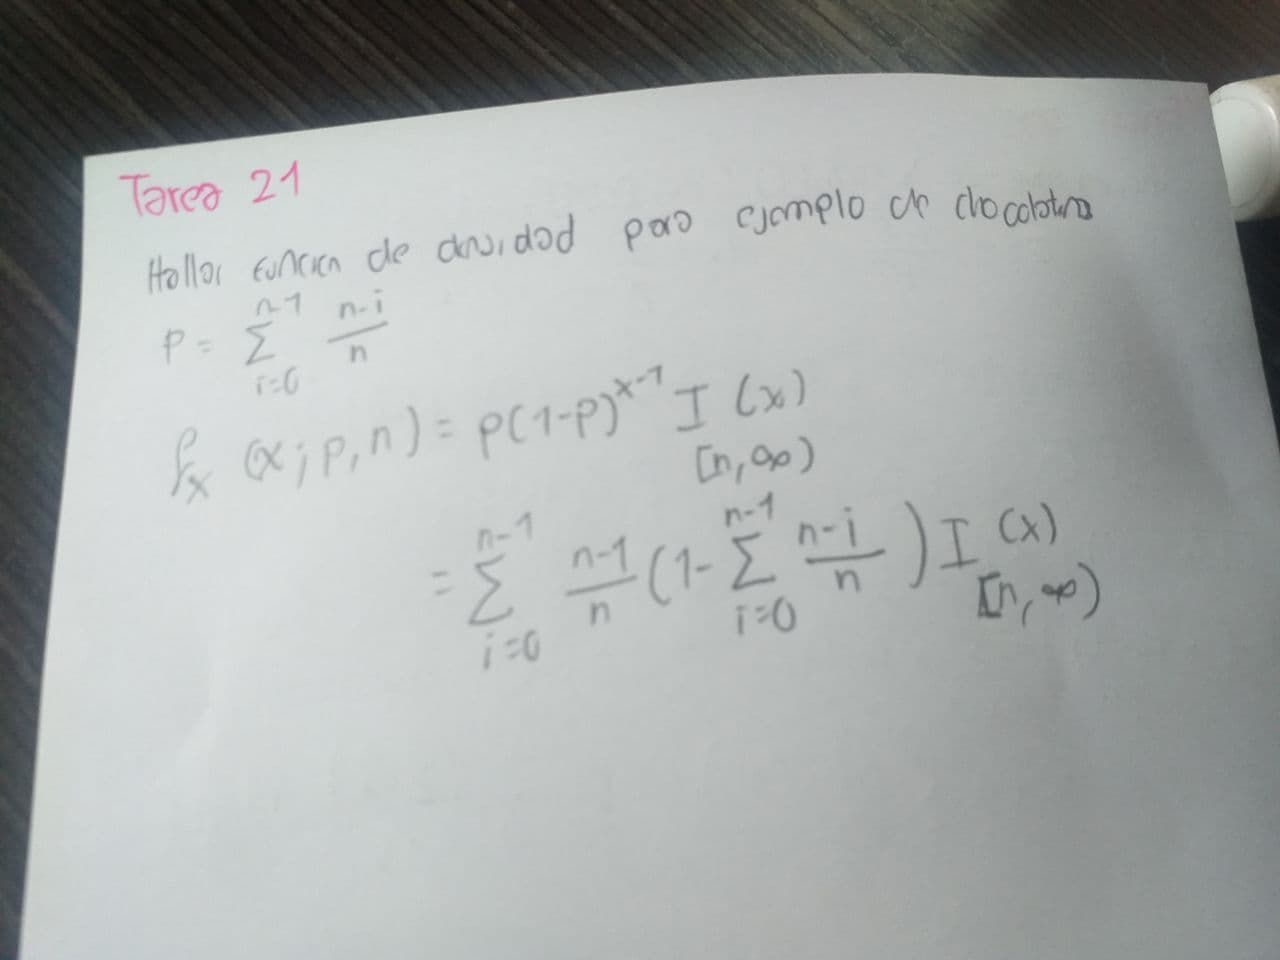 Tarea 21
Hallar función de densidad para ejemplo de chocolatina
P = \sum_{i=0}^{n-1} \frac{n-i}{n}
f_x (x; p, n) = p(1-p)^{x-1} I (x) [n, ∞)
= \sum_{i=0}^{n-1} \frac{n-1}{n} (1- \sum_{i=0}^{n-1} \frac{n-i}{n} ) I (x) [n, ∞)